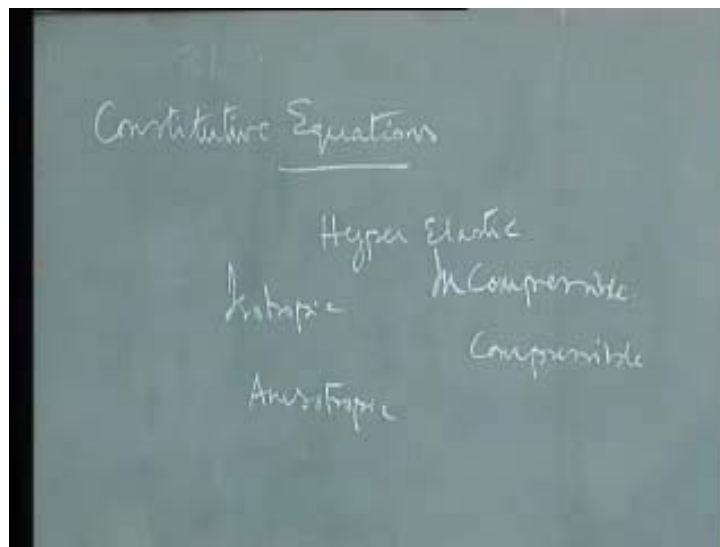 Constitutive Equations
Hyper Elastic
Isotropic InCompressible
Compressible
Anisotropic